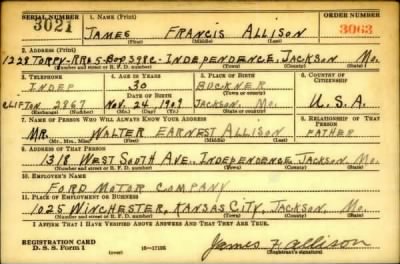 SERIAL NUMBER 1. NAME (Print) ORDER NUMBER
3021 JAMES FRANCIS ALLISON 3063
(First) (Middle) (Last)
2. ADDRESS (Print)
1228 TORPY-RR#5-BOX 598C-INDEPENDENCE, JACKSON Mo.
(Number and street or R. F. D. number) (Town) (County) (State)
3. TELEPHONE 4. AGE IN YEARS 5. PLACE OF BIRTH 6. COUNTRY OF CITIZENSHIP
INDEP 30 BUCKNER
DATE OF BIRTH (Town or county)
CLIFTON 2867 NOV. 24, 1909 JACKSON, Mo. U.S.A.
(Exchange) (Number) (Mo.) (Day) (Yr.) (State or country)
7. NAME OF PERSON WHO WILL ALWAYS KNOW YOUR ADDRESS 8. RELATIONSHIP OF THAT PERSON
MR. WALTER EARNEST ALLISON FATHER
(Mr., Mrs., Miss) (First) (Middle) (Last)
9. ADDRESS OF THAT PERSON
1318 WEST SOUTH AVE. INDEPENDENCE, JACKSON Mo.
(Number and street or R. F. D. number) (Town) (County) (State)
10. EMPLOYER'S NAME
FORD MOTOR COMPANY
11. PLACE OF EMPLOYMENT OR BUSINESS
1025 WINCHESTER, KANSAS CITY, JACKSON, Mo.
(Number and street or R. F. D. number) (Town) (County) (State)
I AFFIRM THAT I HAVE VERIFIED ABOVE ANSWERS AND THAT THEY ARE TRUE.
REGISTRATION CARD
D. S. S. Form 1 16-17105 James F. Allison
(Registrant's signature)